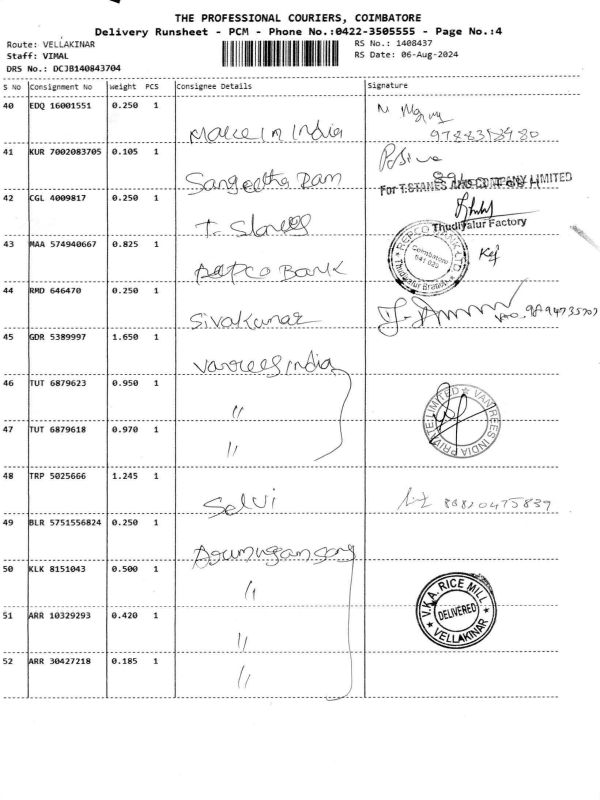 THE PROFESSIONAL COURIERS, COIMBATORE
Delivery Runsheet - PCM - Phone No.:0422-3505555 - Page No.:4
Route: VELLAKINAR
RS No.: 1408437
Staff: VIMAL
RS Date: 06-Aug-2024
DRS No.: DCJB140843704
S No Consignment No Weight PCS Consignee Details Signature
40 EDQ 16001551 0.250 1
Make In India
9788358980
41 KUR 7002083705 0.105 1
Sangeetha Ram
For T.STANES AND COMPANY LIMITED
42 CGL 4009817 0.250 1
T. Stanes
Thudiyalur Factory
43 MAA 574940667 0.825 1
Repco Bank
REPCO BANK LTD
Coimbatore
641 029
Thudiyalur Branch
44 RMD 646470 0.250 1
Sivakumar
45 GDR 5389997 1.650 1
Vanrees India
46 TUT 6879623 0.950 1
"
VAN REES INDIA PRIVATE LIMITED
47 TUT 6879618 0.970 1
"
48 TRP 5025666 1.245 1
Selvi
49 BLR 5751556824 0.250 1
50 KLK 8151043 0.500 1
"
V.K.A. RICE MILL
DELIVERED
VELLAKINAR
51 ARR 10329293 0.420 1
"
52 ARR 30427218 0.185 1
"